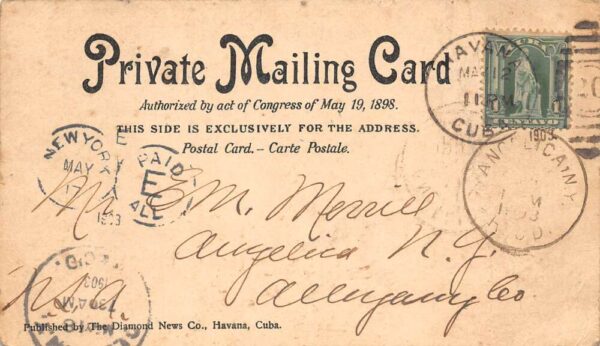 Private Mailing Card
Authorized by act of Congress of May 19, 1898.
THIS SIDE IS EXCLUSIVELY FOR THE ADDRESS.
Postal Card.—Carte Postale.
HAVANA
MAY 12
11 PM
CUBA
1903
NEW YORK
MAY
17
1903
PAID
E
ALL
Mr. E.M. Merrill
Angelica N.Y.
Allegany Co.
USA
1903
30 AM
Published by The Diamond News Co., Havana, Cuba.